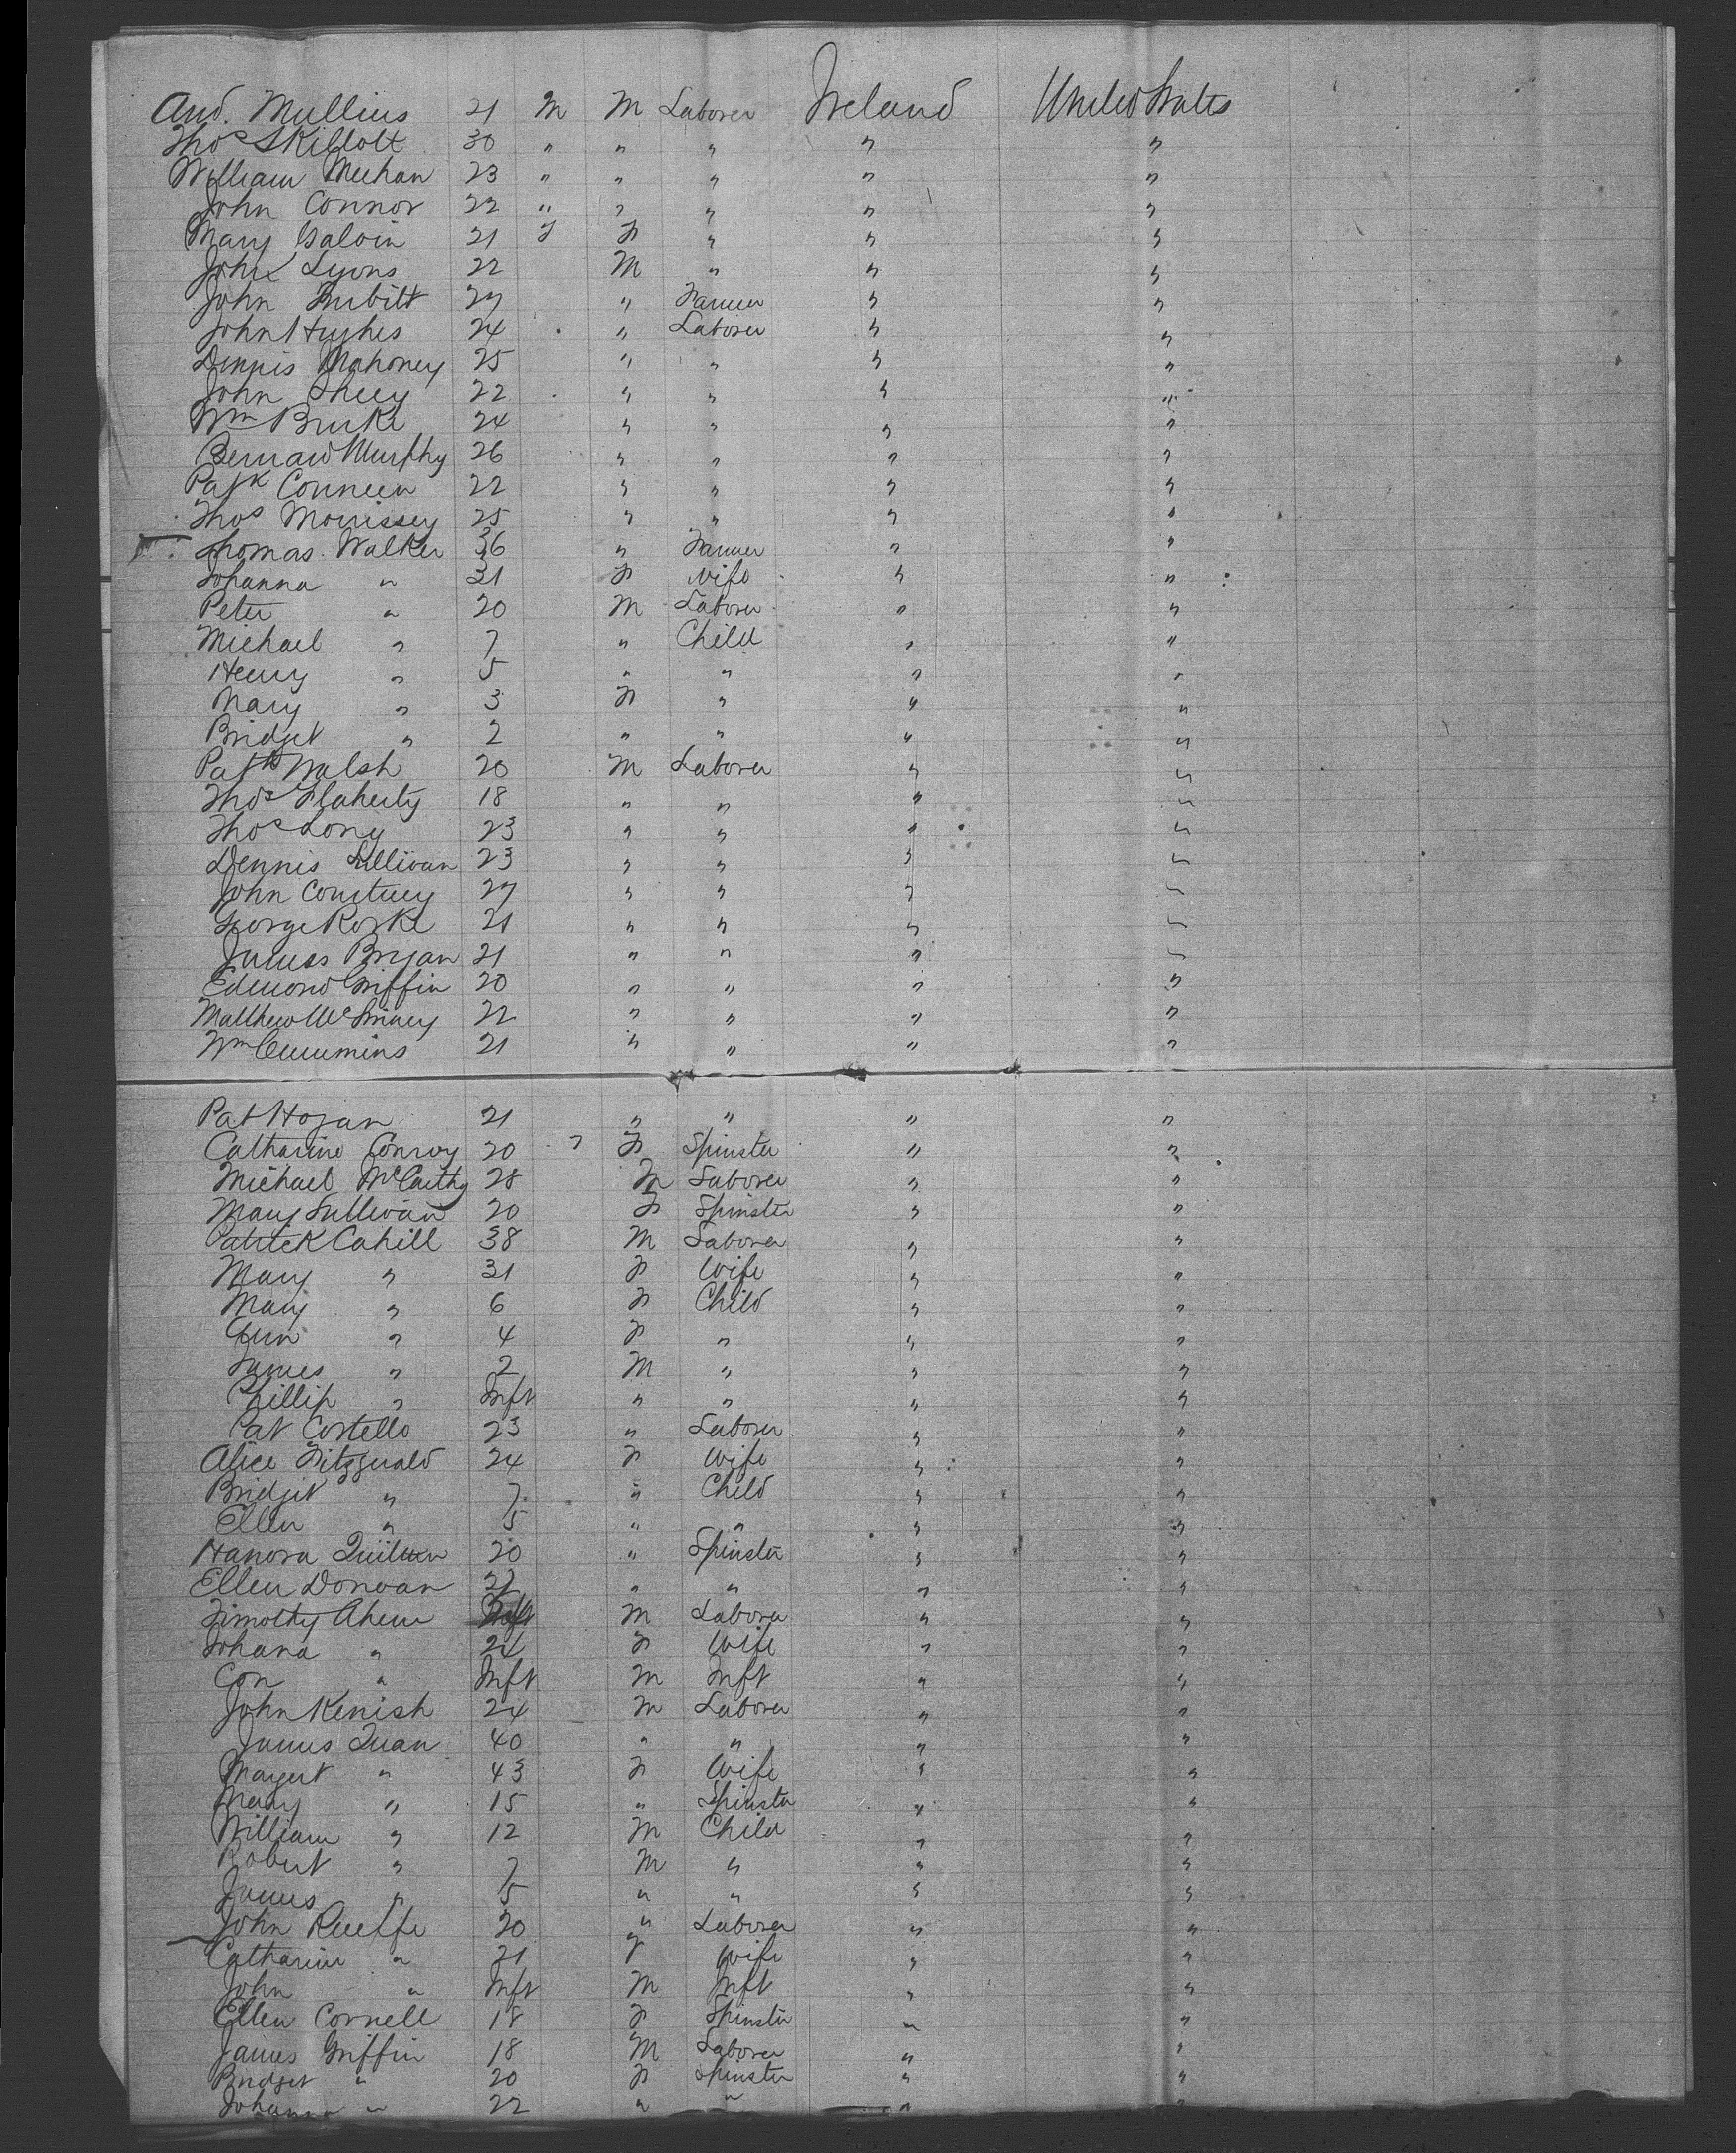 And. Mullins 21 M M Laborer Ireland United States
Thos Skillott 30 " " " " "
William Meehan 23 " " " " "
John Connor 22 " " " " "
Mary Galvin 21 F F " " "
John Lyons 22 M " " "
John 27 " Farmer " "
John Hughes 24 " Laborer " "
Dennis Mahoney 25 " " " "
John Sheey 22 " " " "
Wm Burke 24 " " " "
Bernard Murphy 26 " " " "
Patk Conneen 22 " " " "
Thos Morrissey 25 " " " "
Thomas Walker 36 " Farmer " "
Johanna " 31 F Wife " "
Peter " 20 M Laborer " "
Michael " 7 " Child " "
Henry " 5 " " " "
Mary " 3 F " " "
Bridget " 2 " " " "
Patk Walsh 20 M Laborer " "
Thos Flaherty 18 " " " "
Thos Long 23 " " " "
Dennis Sullivan 23 " " " "
John Courtney 27 " " " "
George Rorke 21 " " " "
James Bryan 21 " " " "
Edmond Griffin 20 " " " "
Matthew 22 " " " "
Wm Cummins 21 " " " "
Pat Hogan 21 " " " "
Catharine Conroy 20 " F Spinster " "
Michael McCarthy 28 M Laborer " "
Mary Sullivan 20 F Spinster " "
Patrick Cahill 38 M Laborer " "
Mary " 31 F Wife " "
Mary " 6 F Child " "
Ann " 4 F " " "
James " 2 M " " "
Phillip " Inft " " " "
Pat Costello 23 " Laborer " "
Alice Fitzgerald 24 F Wife " "
Bridget " 7 " Child " "
Ellen " 5 " " " "
Hanora 20 " Spinster " "
Ellen Donovan 22 " " " "
Timothy Ahern M Laborer " "
Johana " 24 F Wife " "
Con " Inft M Inft " "
John Kenish 24 M Laborer " "
James Quan 40 " " " "
Margert " 43 F Wife " "
Mary " 15 " Spinster " "
William " 12 M Child " "
Robert " 7 M " " "
James " 5 " " " "
John Keeffe 20 " Laborer " "
Catharine " 21 F Wife " "
John " Inft M Inft " "
Ellen Cornell 18 F Spinster " "
James Griffin 18 M Laborer " "
Bridget " 20 F Spinster " "
Johanna " 22 " " " "